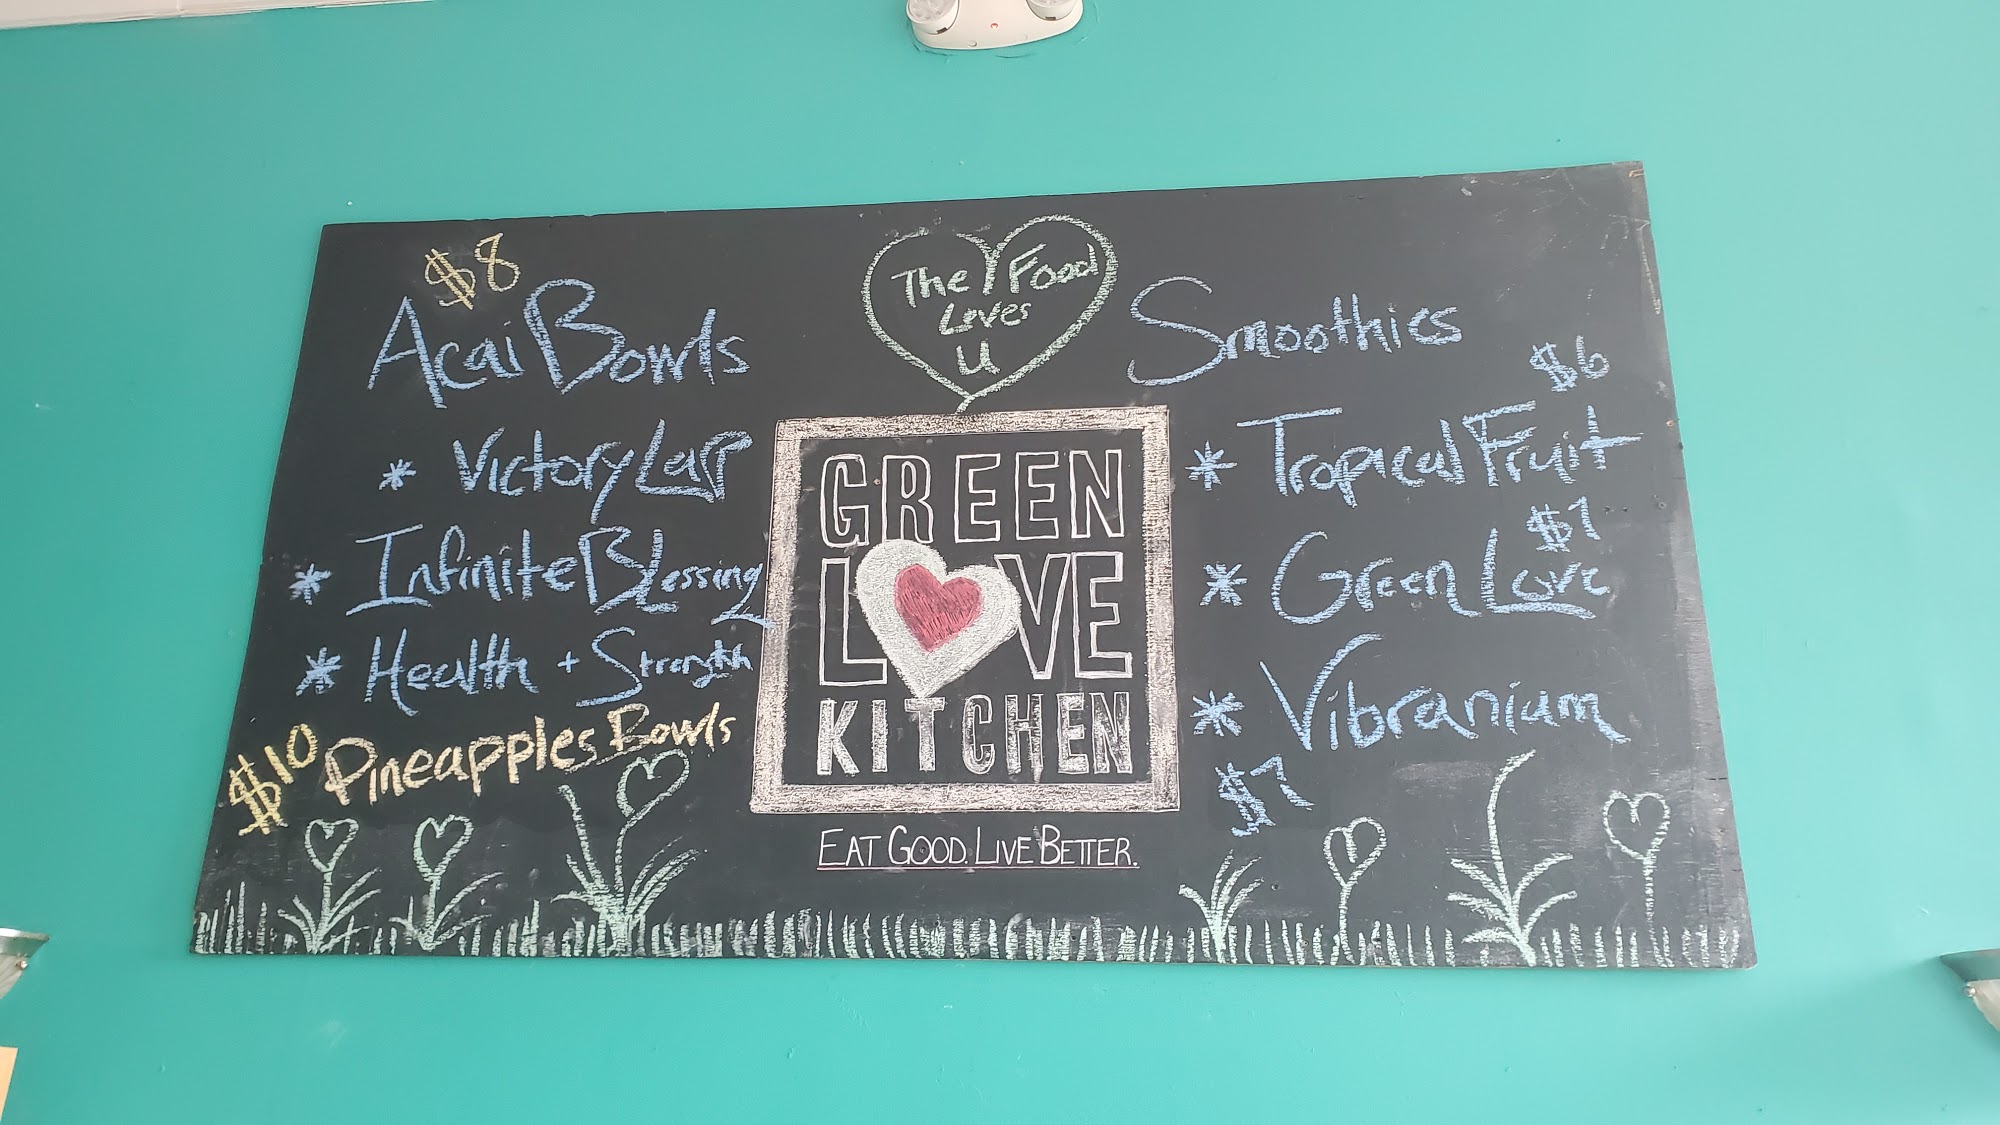 $8
Acai Bowls
* Victory Lap
* Infinite Blessing
* Health + Strength
$10 Pineapples Bowls
The Food
Loves
U
GREEN
LOVE
KITCHEN
EAT GOOD. LIVE BETTER.
Smoothies
$6
* Tropical Fruit
$7
* Green Love
* Vibranium
$7